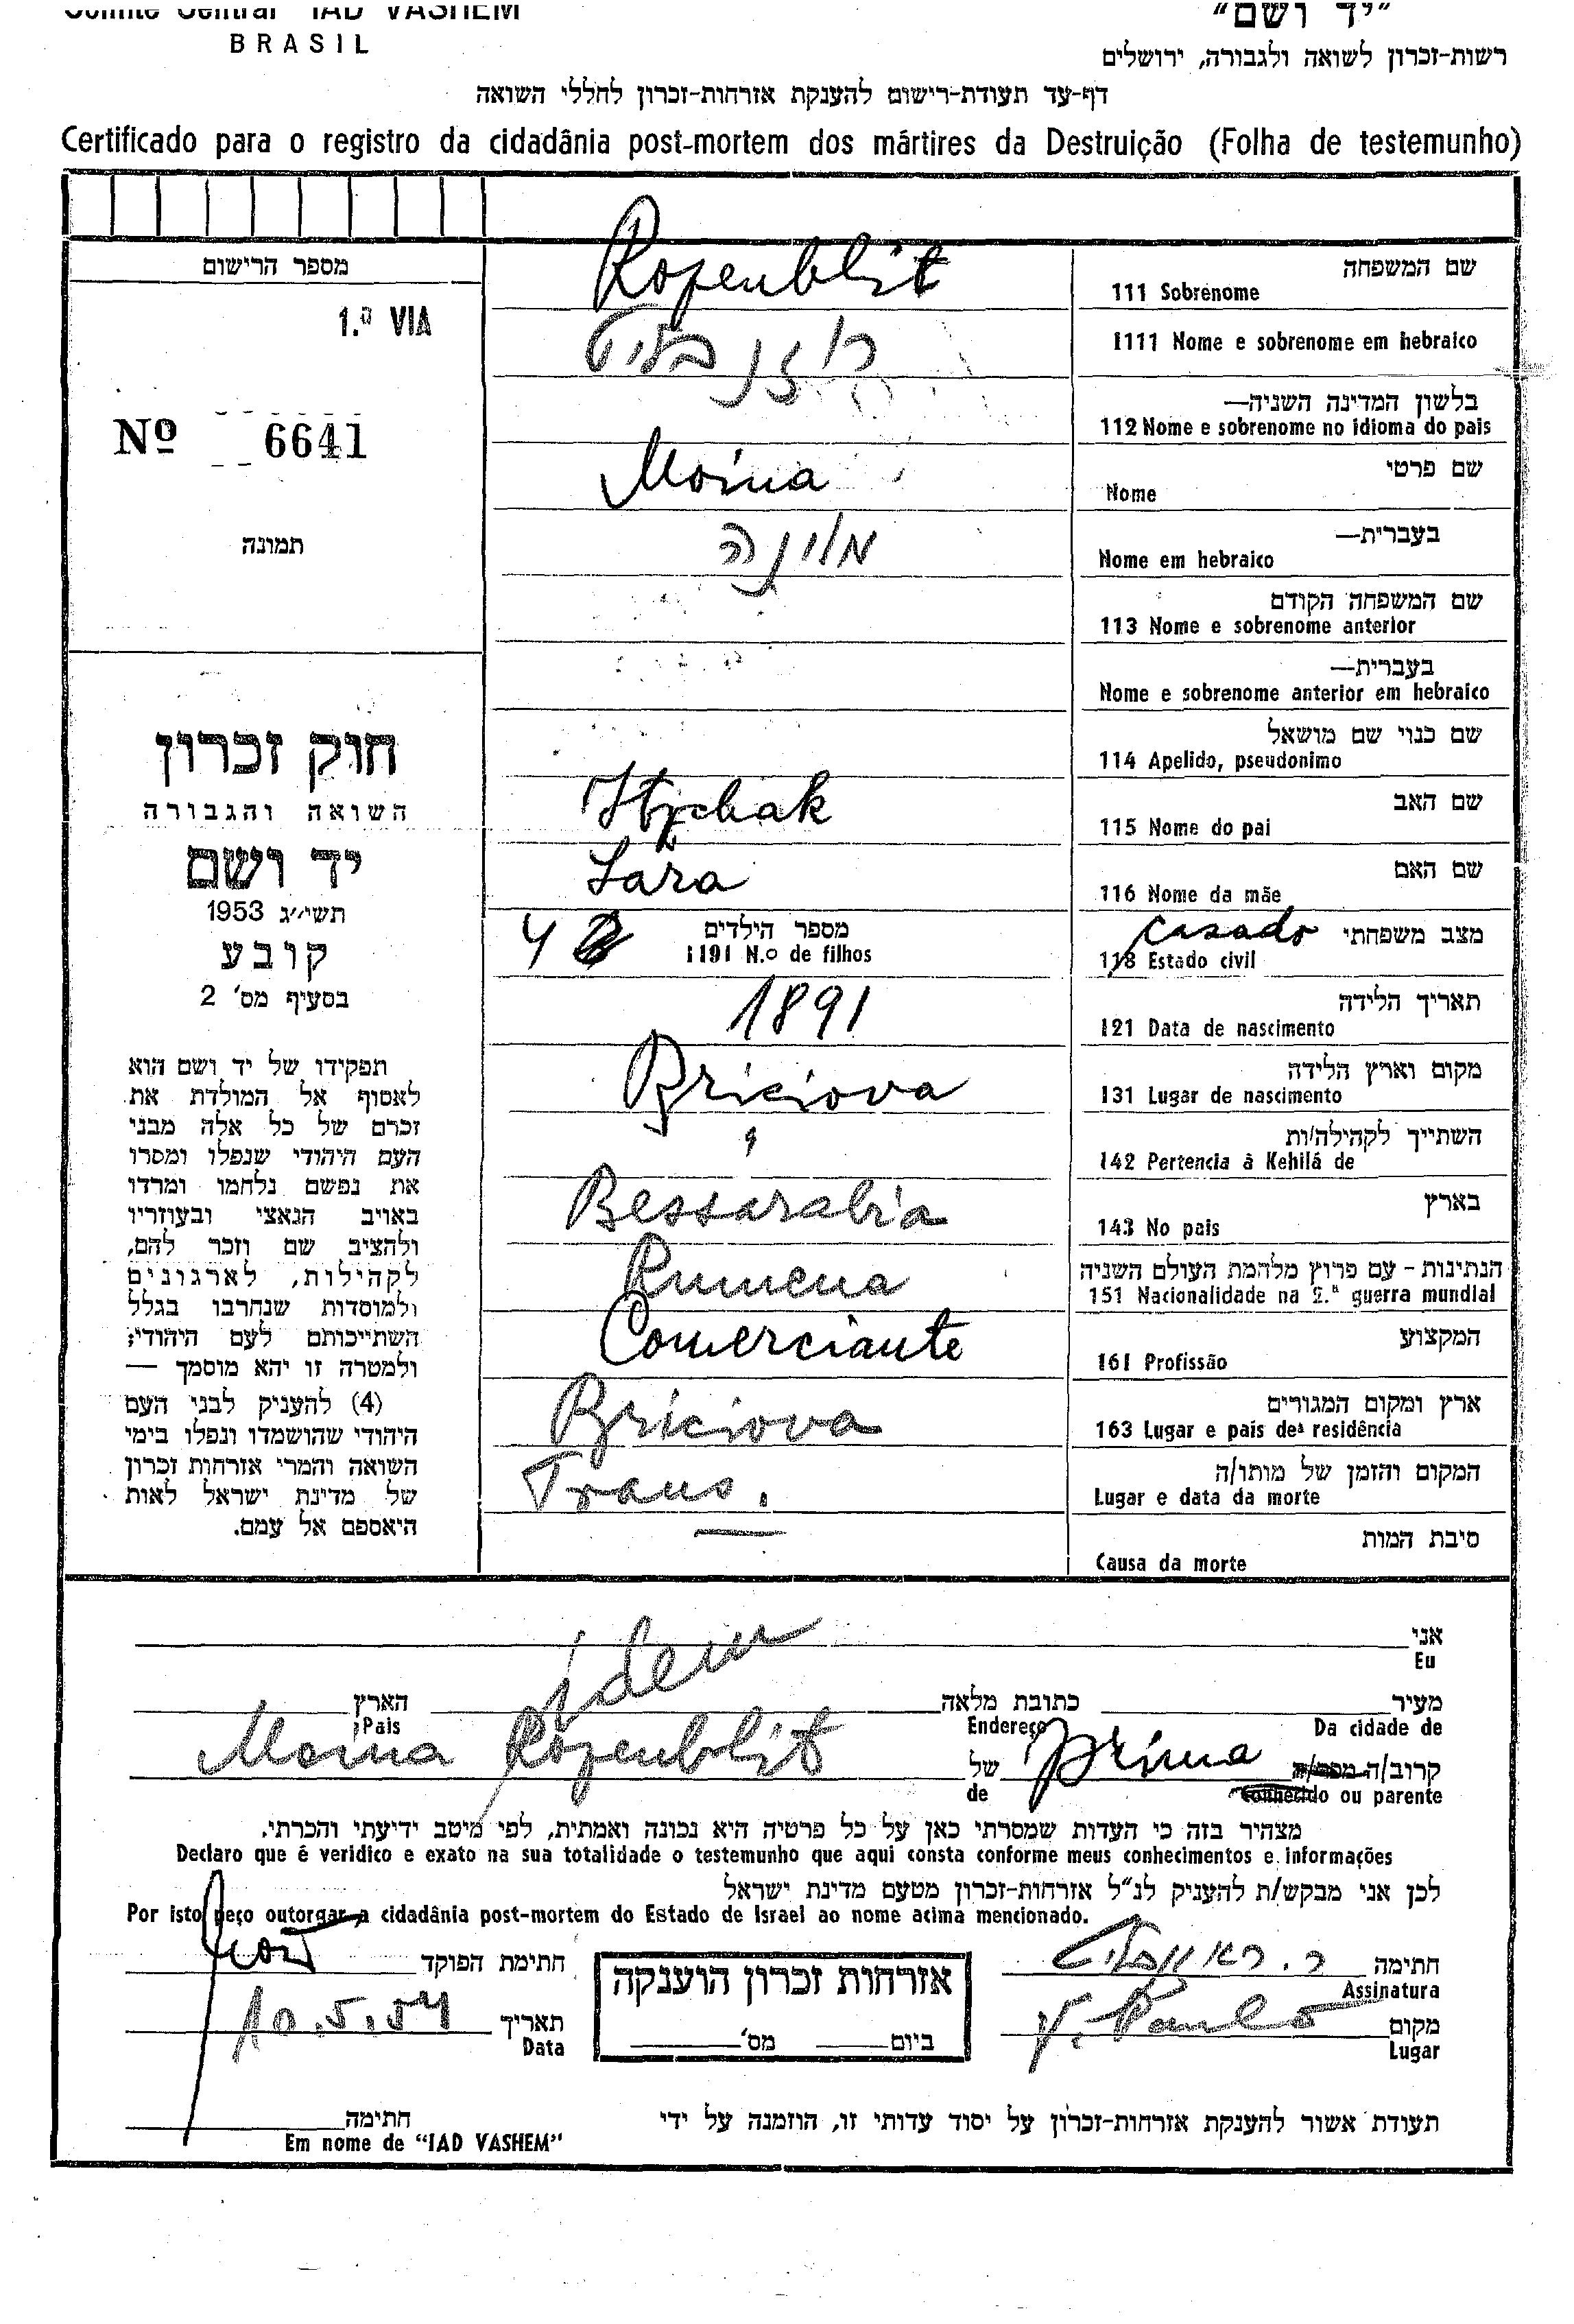 Comite Central IAD VASHEM
BRASIL
"יד ושם"
רשות-זכרון לשואה ולגבורה, ירושלים
דף-עד תעודת-רישום להענקת אזרחות-זכרון לחללי השואה
Certificado para o registro da cidadânia post-mortem dos mártires da Destruição (Folha de testemunho)
מספר הרישום
1.ª VIA
Nº 6641
תמונה
חוק זכרון
השואה והגבורה
יד ושם
תשי״ג 1953
קובע
בסעיף מס' 2
תפקידו של יד ושם הוא
לאסוף אל המולדת את
זכרם של כל אלה מבני
העם היהודי שנפלו ומסרו
את נפשם נלחמו ומרדו
באויב הנאצי ובעוזריו
ולהציב שם וזכר להם,
לקהילות, לארגונים
ולמוסדות שנחרבו בגלל
השתייכותם לעם היהודי;
ולמטרה זו יהא מוסמך —
(4) להעניק לבני העם
היהודי שהושמדו ונפלו בימי
השואה והמרי אזרחות זכרון
של מדינת ישראל לאות
היאספם אל עמם.
שם המשפחה
111 Sobrenome Rozenblit
1111 Nome e sobrenome em hebraico רוזנבליט
בלשון המדינה השניה—
112 Nome e sobrenome no idioma do pais
שם פרטי
Nome Moina
בעברית—
Nome em hebraico מוינה
שם המשפחה הקודם
113 Nome e sobrenome anterior
בעברית—
Nome e sobrenome anterior em hebraico
שם כנוי שם מושאל
114 Apelido, pseudonimo
שם האב
115 Nome do pai Itzchak
שם האם
116 Nome da mãe Sara
מצב משפחתי casado
118 Estado civil
מספר הילדים
1191 N.o de filhos 4
תאריך הלידה
121 Data de nascimento 1891
מקום וארץ הלידה
131 Lugar de nascimento Briciova
השתייך לקהילה/ות
142 Pertencia à Kehilá de
בארץ
143 No pais Bessarabia
הנתינות - עם פרוץ מלחמת העולם השניה
151 Nacionalidade na 2.ª guerra mundial Rumena
המקצוע
161 Profissão Comerciante
ארץ ומקום המגורים
163 Lugar e país de residência Briciova
המקום והזמן של מותו/ה
Lugar e data da morte Trans.
סיבת המות
Causa da morte —
אני
Eu
idem
מעיר כתובת מלאה הארץ
Da cidade de Endereço Pais
קרוב/ה prima של Moina Rozenblit
Conhecido ou parente de
מצהיר בזה כי העדות שמסרתי כאן על כל פרטיה היא נכונה ואמתית, לפי מיטב ידיעתי והכרתי.
Declaro que é veridico e exato na sua totalidade o testemunho que aqui consta conforme meus conhecimentos e informações
לכן אני מבקש/ת להעניק לנ"ל אזרחות-זכרון מטעם מדינת ישראל
Por isto peço outorgar a cidadânia post-mortem do Estado de Israel ao nome acima mencionado.
חתימה
Assinatura
מקום S. Paulo
Lugar
אזרחות זכרון הוענקה
ביום מס'
חתימת הפוקד
תאריך 10.5.54
Data
תעודת אשור להענקת אזרחות-זכרון על יסוד עדותי זו, הוזמנה על ידי
חתימה
Em nome de "IAD VASHEM"